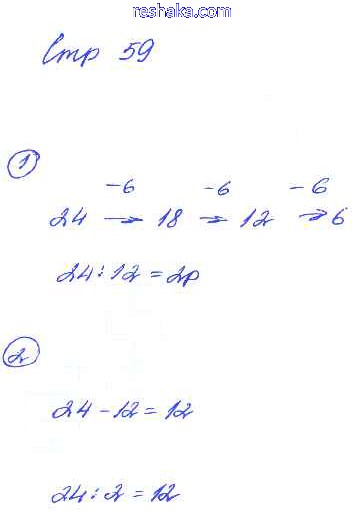 reshaka.com
Стр 59
1
-6 -6 -6
24 → 18 → 12 → 6
24 : 12 = 2р
2
24 - 12 = 12
24 : 2 = 12